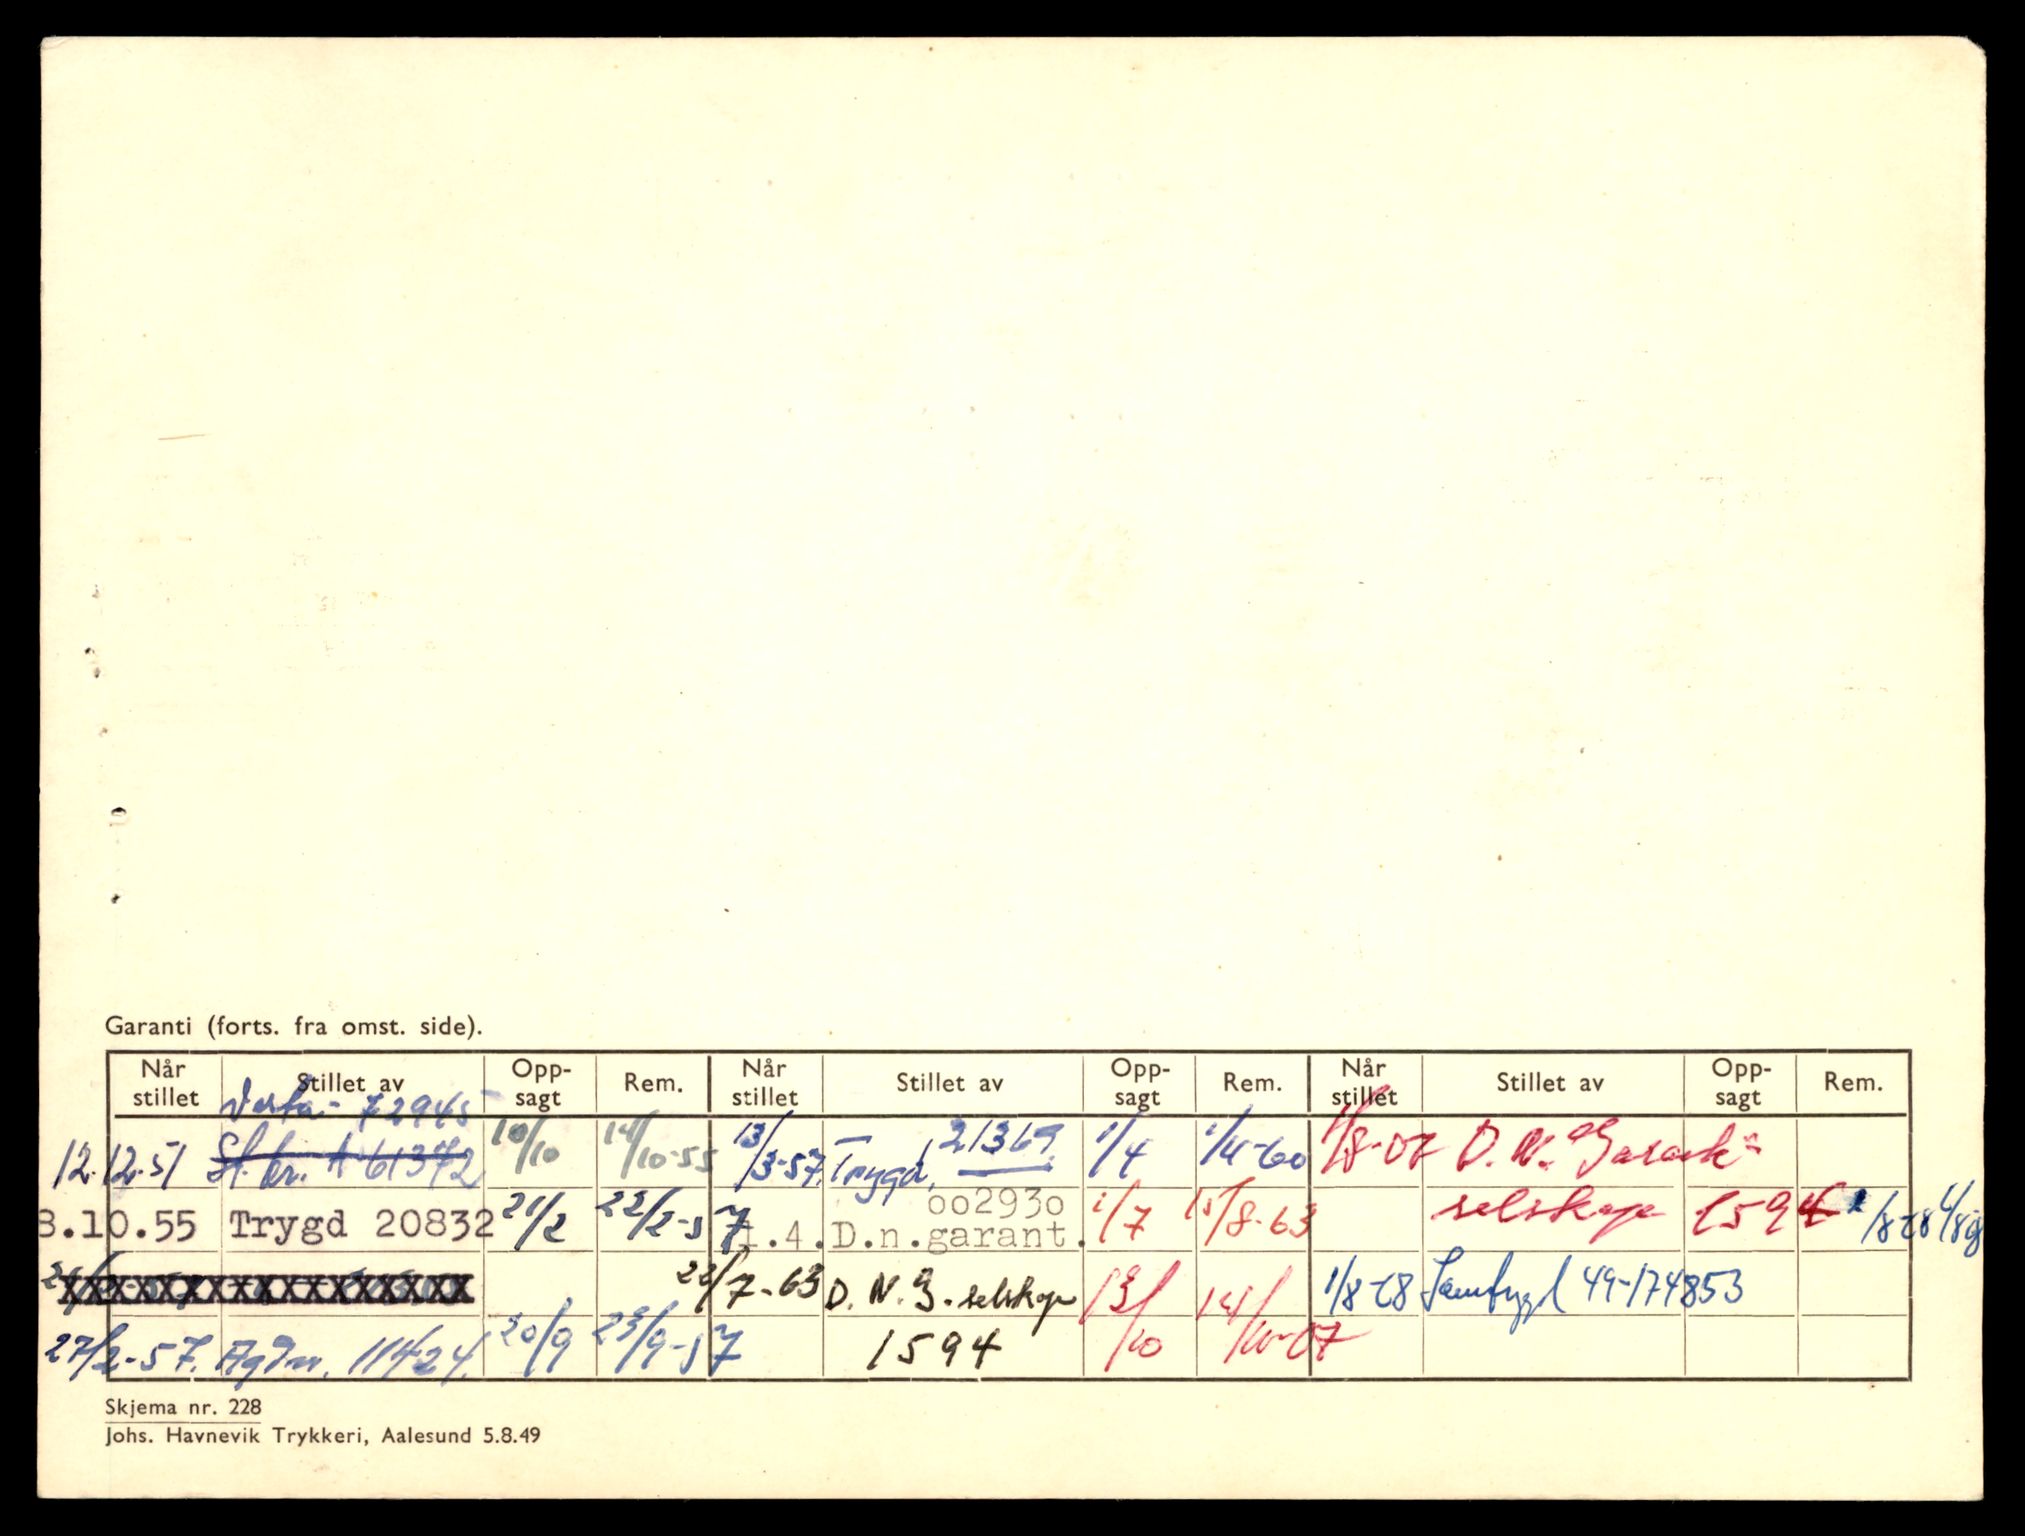 Garanti (forts. fra omst. side).
Når stillet Stillet av Opp-sagt Rem. Når stillet Stillet av Opp-sagt Rem. Når stillet Stillet av Opp-sagt Rem.
Vesta - 72945
12.12.51 St. br. A 61372 10/10 14/10-55 13/3-57. Trygd, 21369. 1/4 1/4-60 1/8-67 D. N. Garanti-
8.10.55 Trygd 20832 21/2 22/2-57 1.4. D.n.garant. oo293o 1/7 15/8-63 selskap 1594 1/8-68
22/7-63 D. N. G. selskap 13/10 14/10-67 1/8-68 Samtrygd 49-174853
27/2-57. 11424. 20/9 23/9-57 1594
Skjema nr. 228
Johs. Havnevik Trykkeri, Aalesund 5.8.49